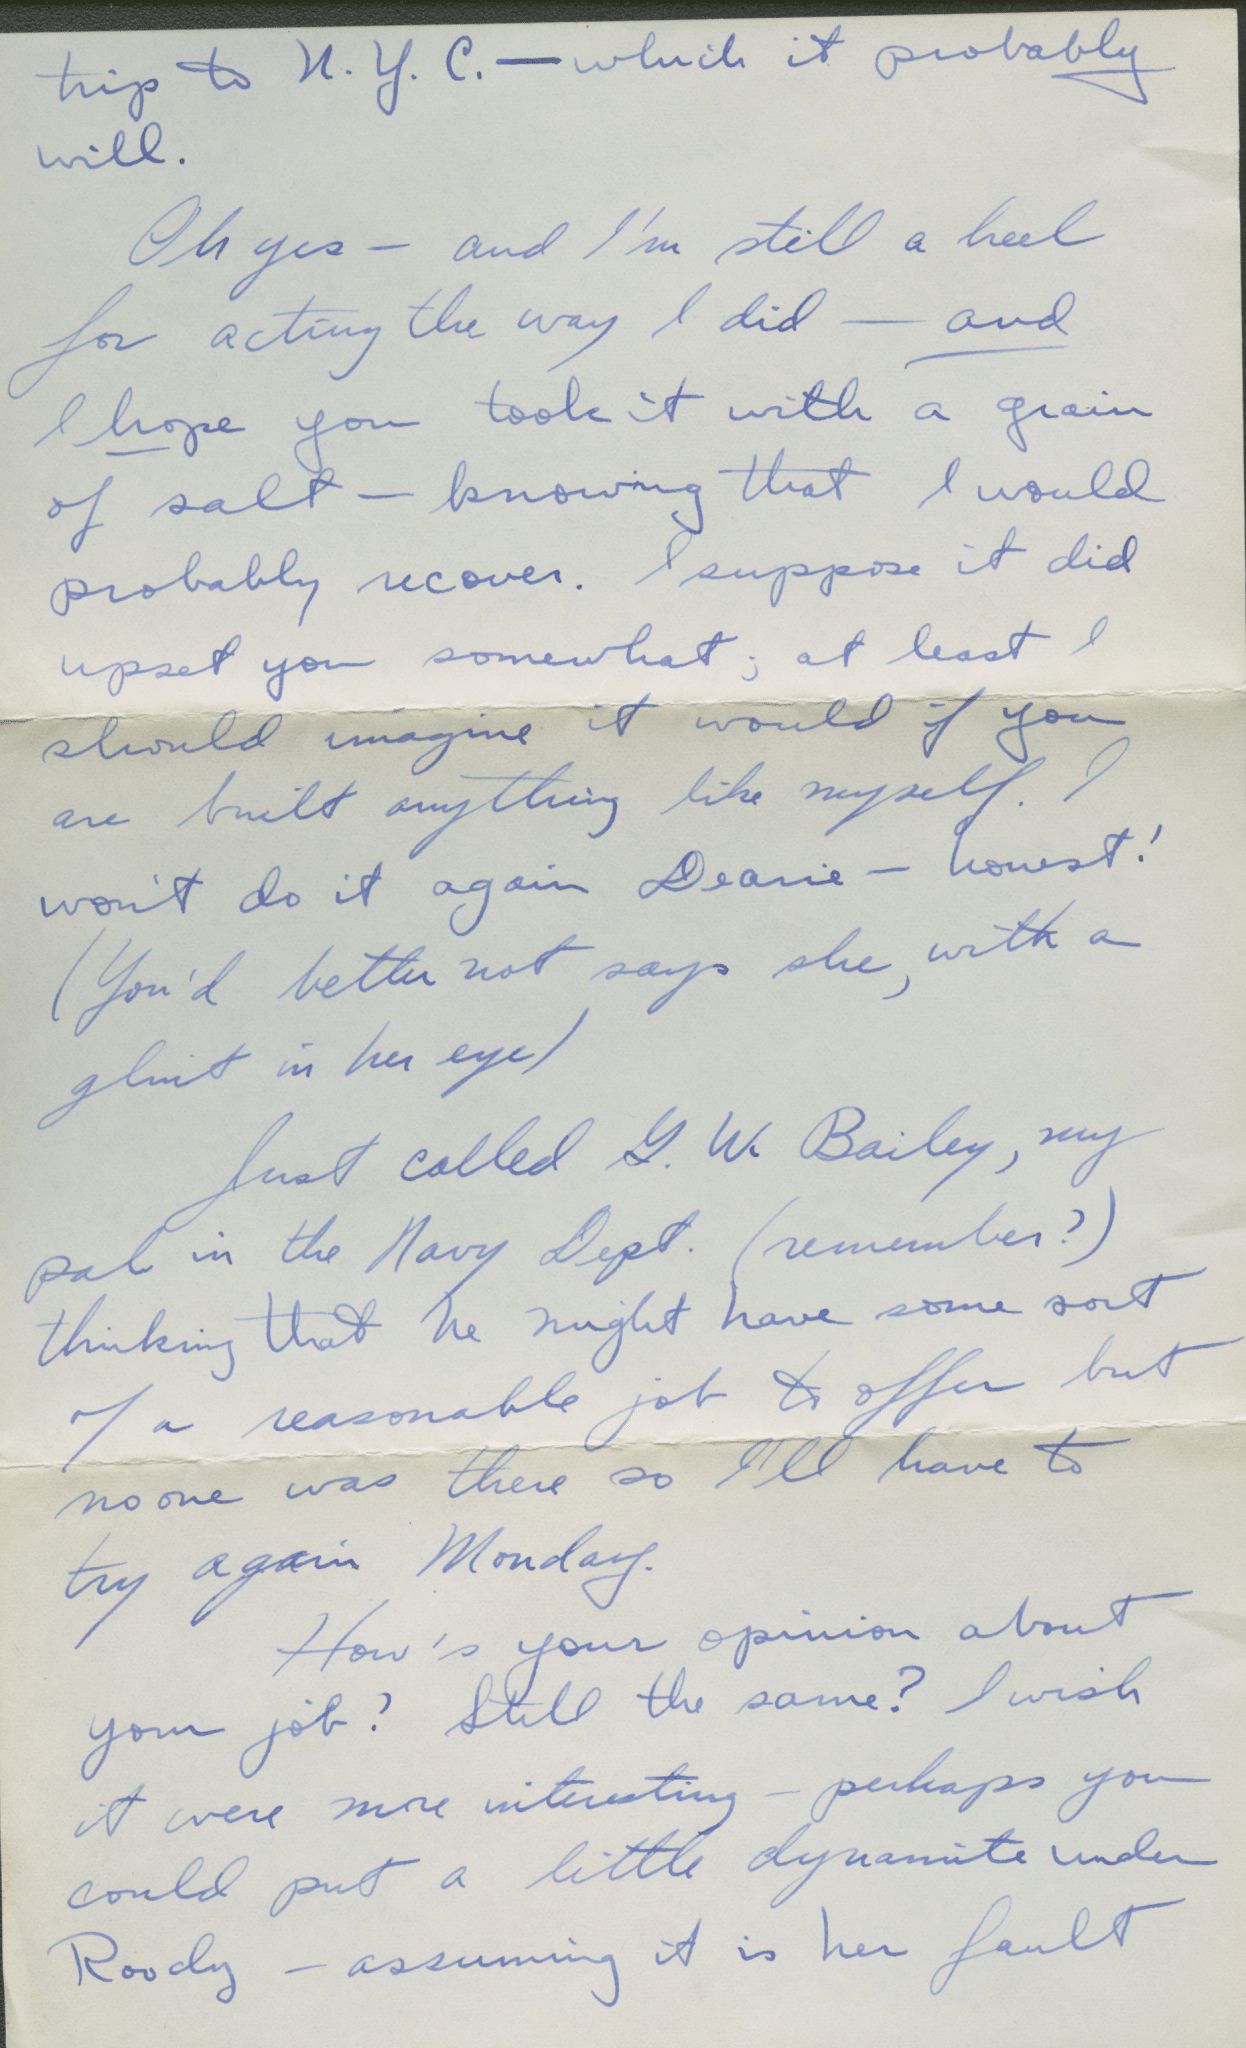 trip to N.Y.C. — which it probably
will.
Oh yes — and I'm still a heel
for acting the way I did — and
I hope you took it with a grain
of salt — knowing that I would
probably recover. I suppose it did
upset you somewhat; at least I
should imagine it would if you
are built anything like myself. I
won't do it again Dearie — honest!
(You'd better not says she, with a
glint in her eye)
Just called G. W. Bailey, my
pal in the Navy Dept. (remember?)
thinking that he might have some sort
of a reasonable job to offer but
no one was there so I'll have to
try again Monday.
How's your opinion about
your job? Still the same? I wish
it were more interesting — perhaps you
could put a little dynamite under
Roody — assuming it is her fault